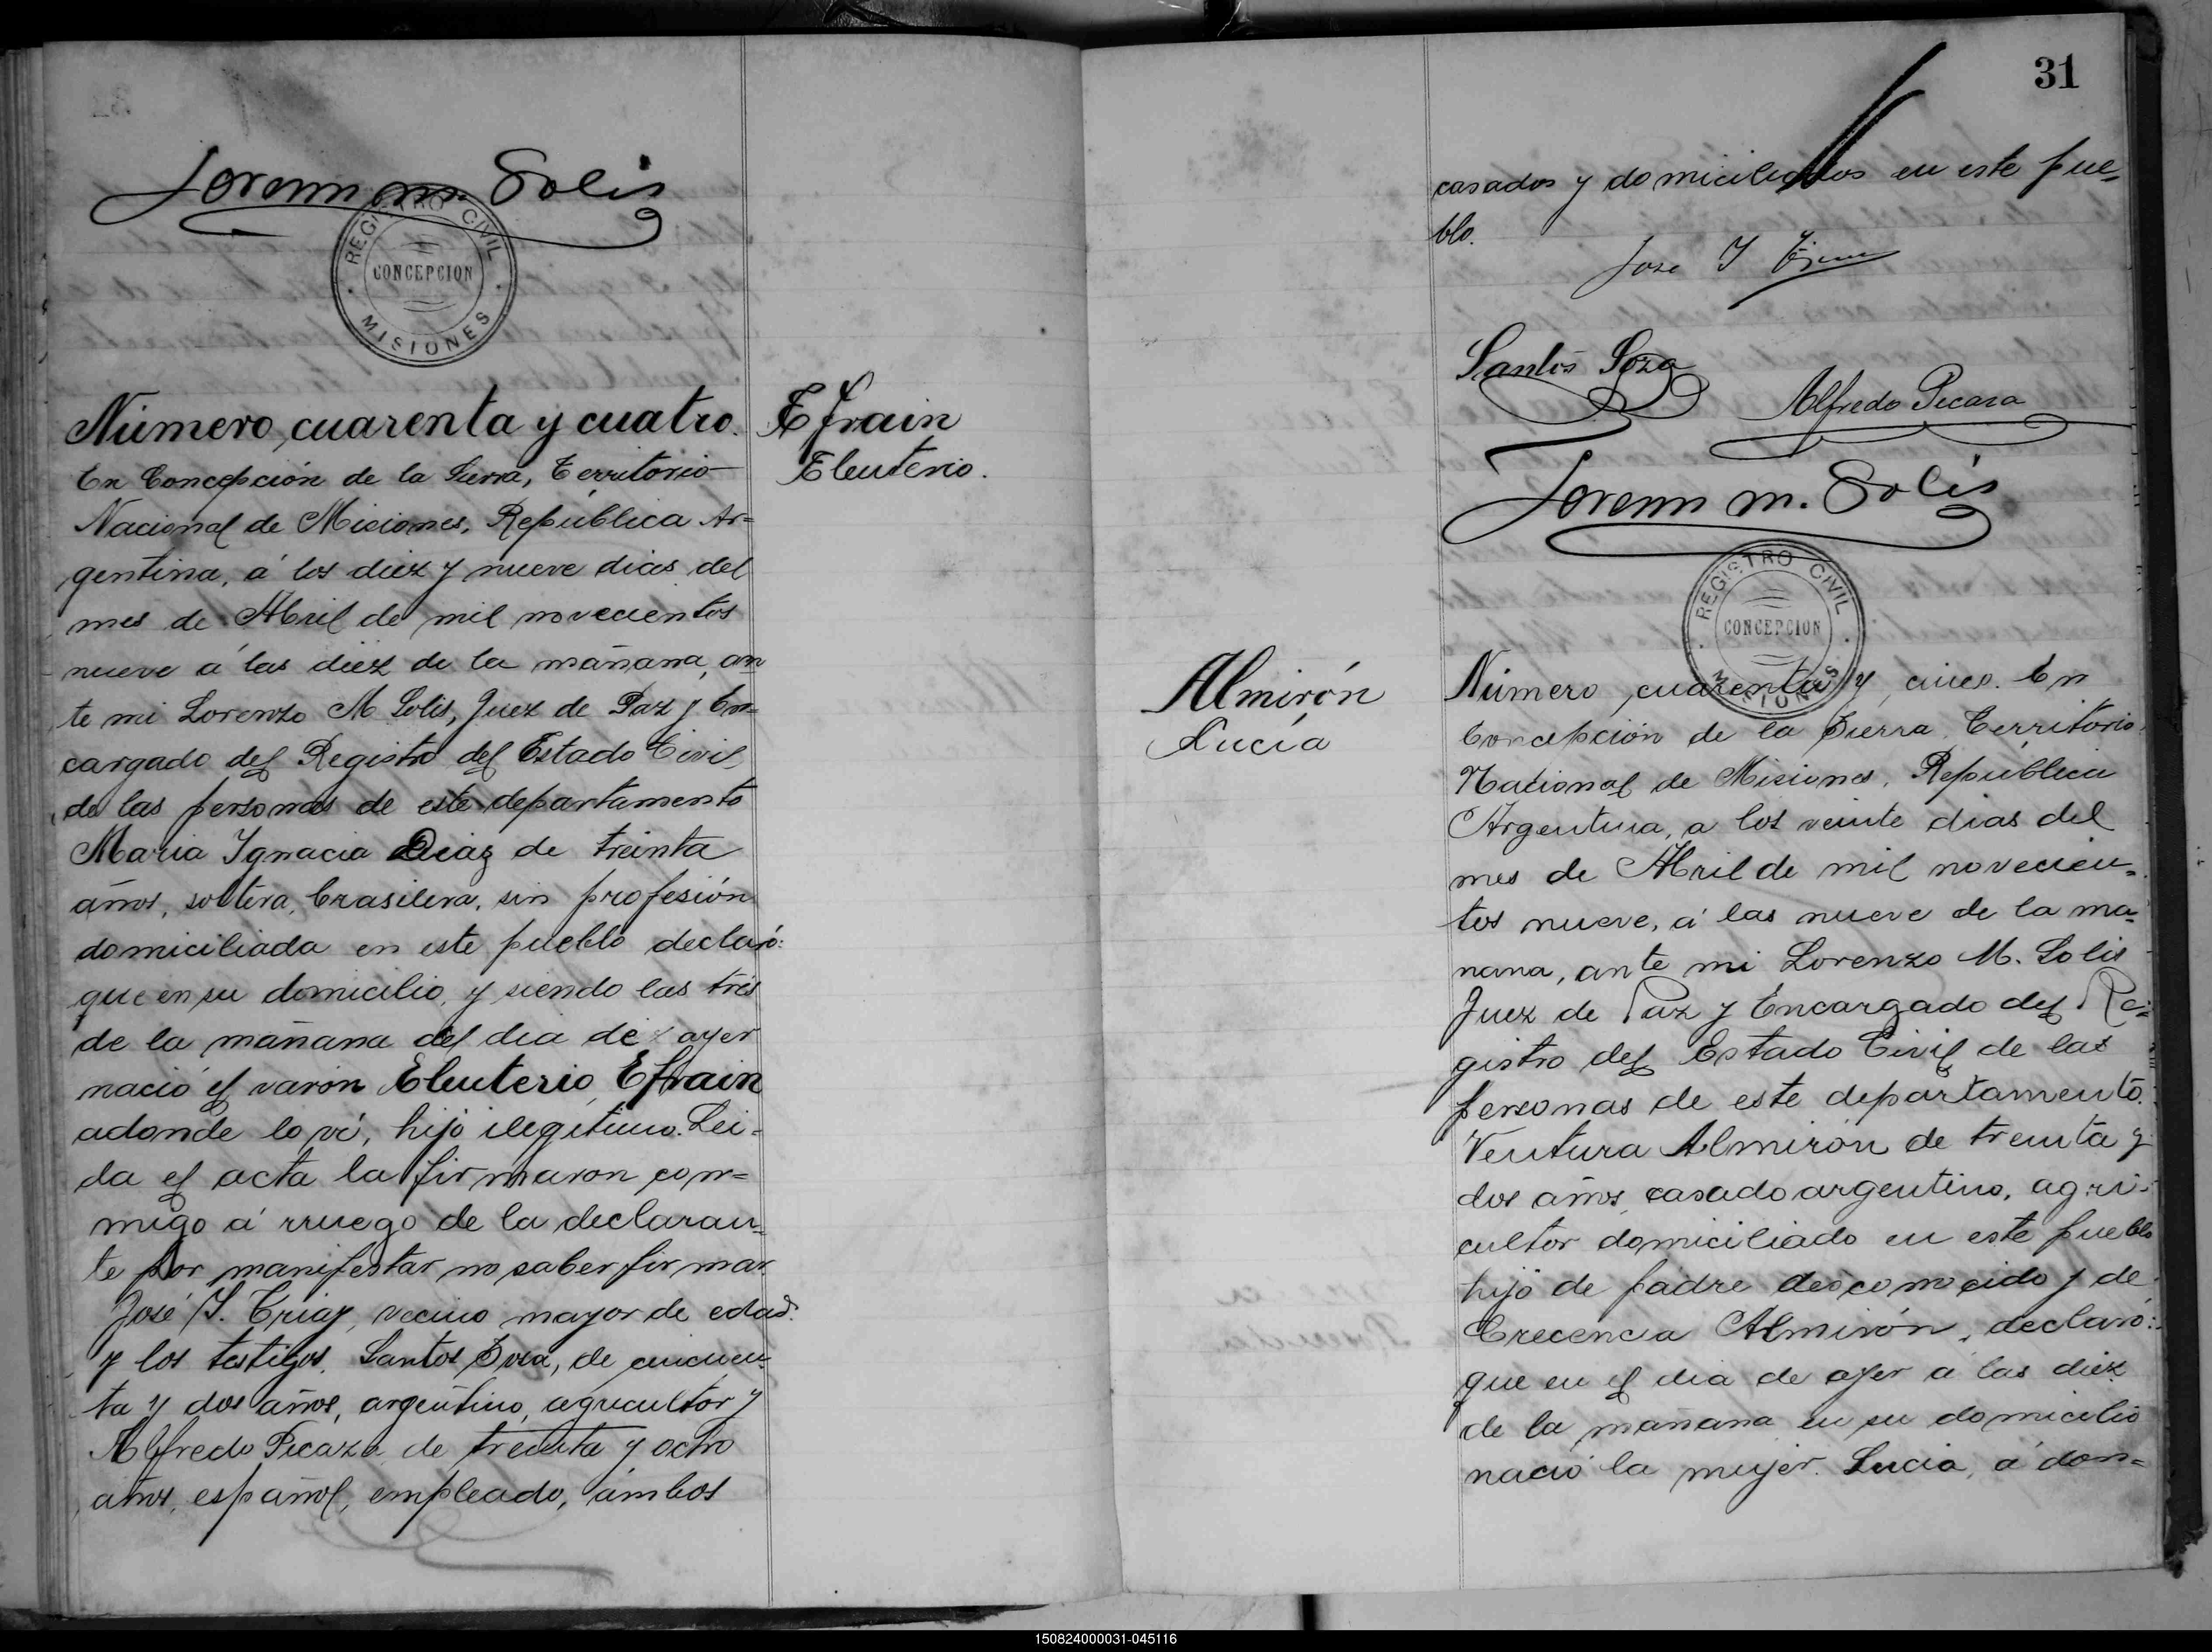 Lorenzo M. Solis
REGISTRO CIVIL
CONCEPCION
MISIONES
Número cuarenta y cuatro.
En Concepción de la Sierra, Territorio
Nacional de Misiones, República Ar=
gentina, á los diez y nueve dias del
mes de Abril de mil novecientos
nueve á las diez de la mañana, an
te mi Lorenzo M Solis, Juez de Paz y En=
cargado del Registro del Estado Civil
de las personas de este departamento
Maria Ignacia Diaz de treinta
años, soltera, brasilera, sin profesión
domiciliada en este pueblo declaró:
que en su domicilio, y siendo las tres
de la mañana del dia de ayer
nació el varón Eleuterio Efrain
adonde lo ví, hijo ilegitimo. Lei=
da el acta la firmaron con=
migo á rruego de la declaran=
te por manifestar no saber firmar
José Y. vecino mayor de edad.
y los testigos, Santos Soza, de cincuen=
ta y dos años, argentino, agricultor y
Alfredo Picaza de treinta y ocho
años, español, empleado, ámbos
Efrain
Eleuterio.
31
casados y domiciliados en este pue=
blo.
Jose Y
Santos Soza
Alfredo Picaza
Lorenzo M. Solis
REGISTRO CIVIL
CONCEPCION
MISIONES
Almirón
Lucía
Número cuarenta y cinco. En
Concepción de la Sierra, Territorio
Nacional de Misiones, República
Argentina, a los veinte dias del
mes de Abril de mil novecien=
tos nueve, á las nueve de la ma=
nana, ante mi Lorenzo M. Solis
Juez de Paz y Encargado del Re=
gistro del Estado Civil de las
personas de este departamento.
Ventura Almirón de treinta y
dos años, casado argentino, agri=
cultor domiciliado en este pueblo
hijo de padre desconocido y de
Crecencia Almirón, declaró:
que en el dia de ayer á las diez
de la mañana en su domicilio
nació la mujer Lucia, á don=
150824000031-045116